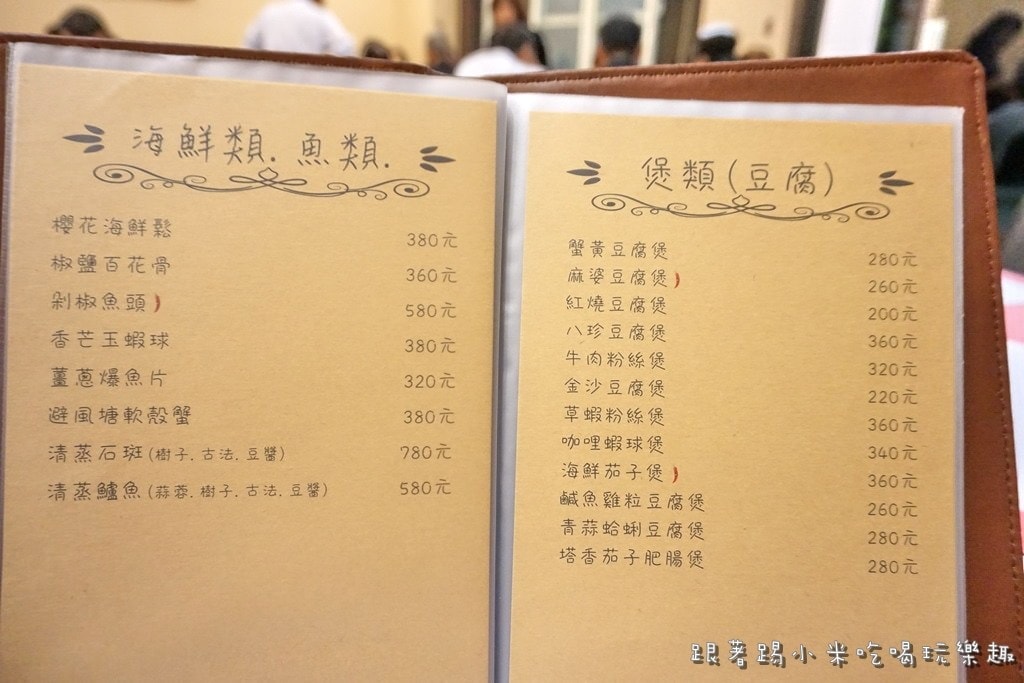 海鮮類.魚類.
櫻花海鮮鬆 380元
椒鹽百花骨 360元
剁椒魚頭 580元
香芒玉蝦球 380元
薑蔥爆魚片 320元
避風塘軟殼蟹 380元
清蒸石斑(樹子.古法.豆醬) 780元
清蒸鱸魚(蒜蓉.樹子.古法.豆醬) 580元
煲類(豆腐)
蟹黃豆腐煲 280元
麻婆豆腐煲 260元
紅燒豆腐煲 200元
八珍豆腐煲 360元
牛肉粉絲煲 320元
金沙豆腐煲 220元
草蝦粉絲煲 360元
咖哩蝦球煲 340元
海鮮茄子煲 360元
鹹魚雞粒豆腐煲 260元
青蒜蛤蜊豆腐煲 280元
塔香茄子肥腸煲 280元
跟著踢小米吃喝玩樂趣